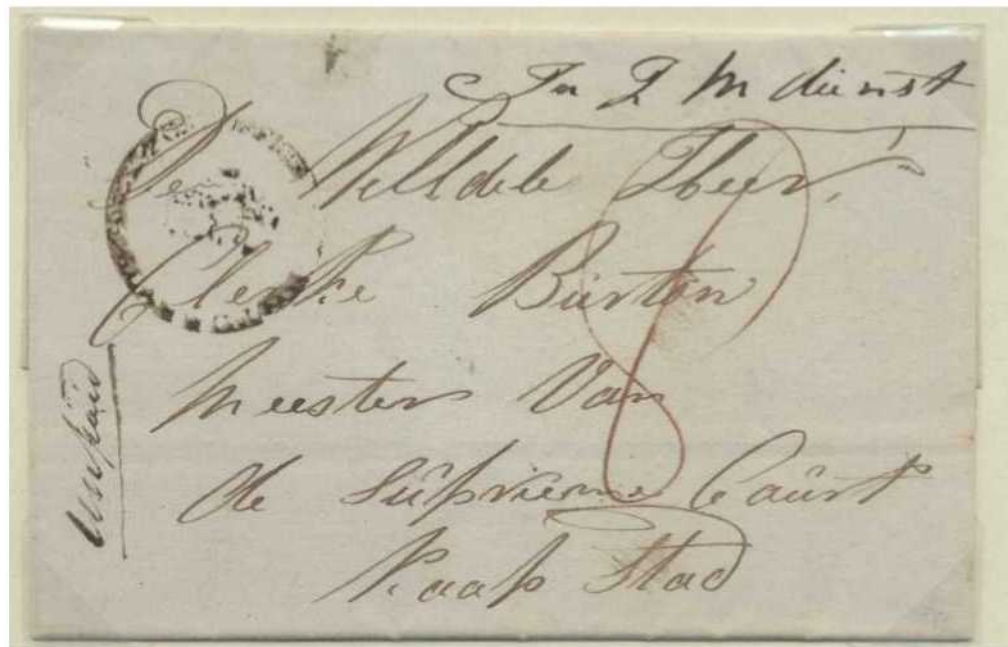 In I M dienst
De WelEdele Heer
Clerke Burton
Meester Van
de Suprieme Court
Kaap Stad
unpaid
8